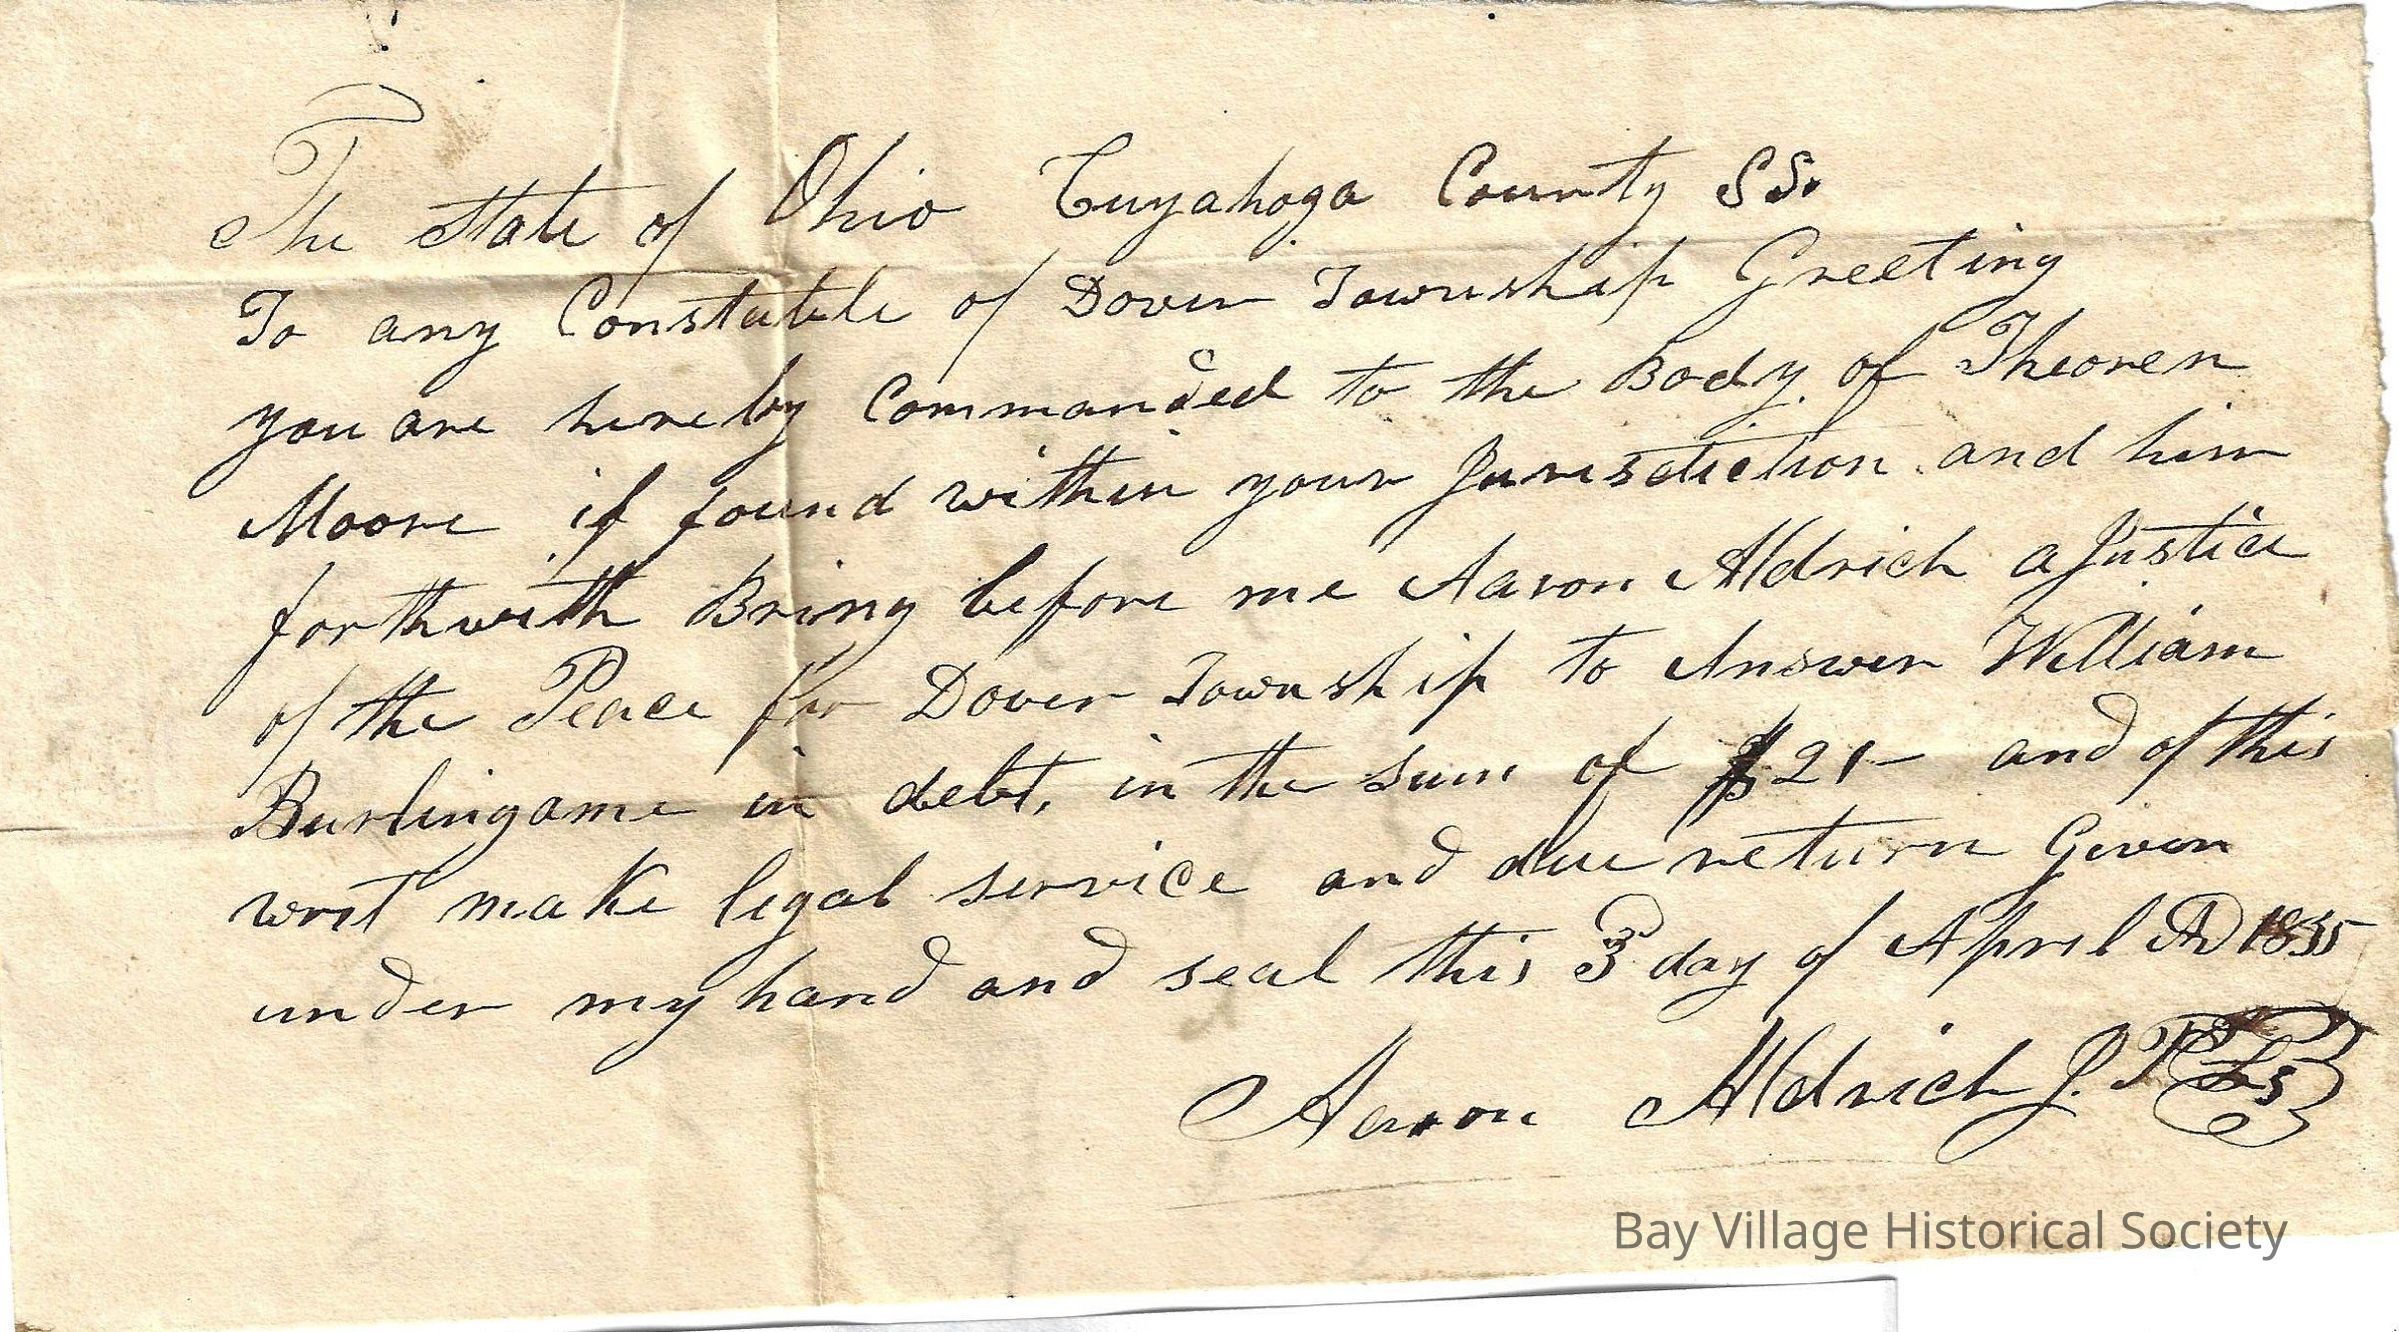 The State of Ohio Cuyahoga County SS.
To any Constable of Dover Township Greeting
you are hereby Commanded to the Body of Theoren
Moore if found within your Jurisdiction and him
forthwith Bring before me Aaron Aldrich a Justice
of the Peace for Dover Township to Answer William
Burlingame in debt, in the sum of $21- and of this
writ make legal service and due return Given
under my hand and seal this 3 day of April AD 1835
Aaron Aldrich J. P. LS
Bay Village Historical Society